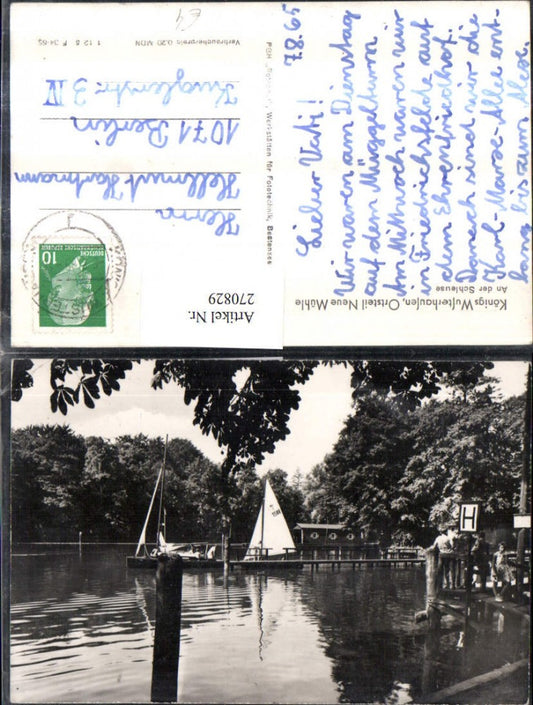 Königs Wusterhausen, Ortsteil Neue Mühle
An der Schleuse
7.8.65
Lieber Vati!
Wir waren am Dienstag
auf dem Müggelturm.
Am Mittwoch waren wir
in Friedrichsfelde auf
dem Ehrenfriedhof.
Danach sind wir die
Karl-Marx-Allee ent-
lang bis zum Alex.
PGH "Rotophot", Werkstätten für Fototechnik, Bestensee
DEUTSCHE
10
Herrn
Hellmut Hartmann
1071 Berlin
Kuglerstr. 3 IV
1 12 8 F 34-65
Verbraucherpreis 0,20 MDN
Artikel Nr.
270829
H